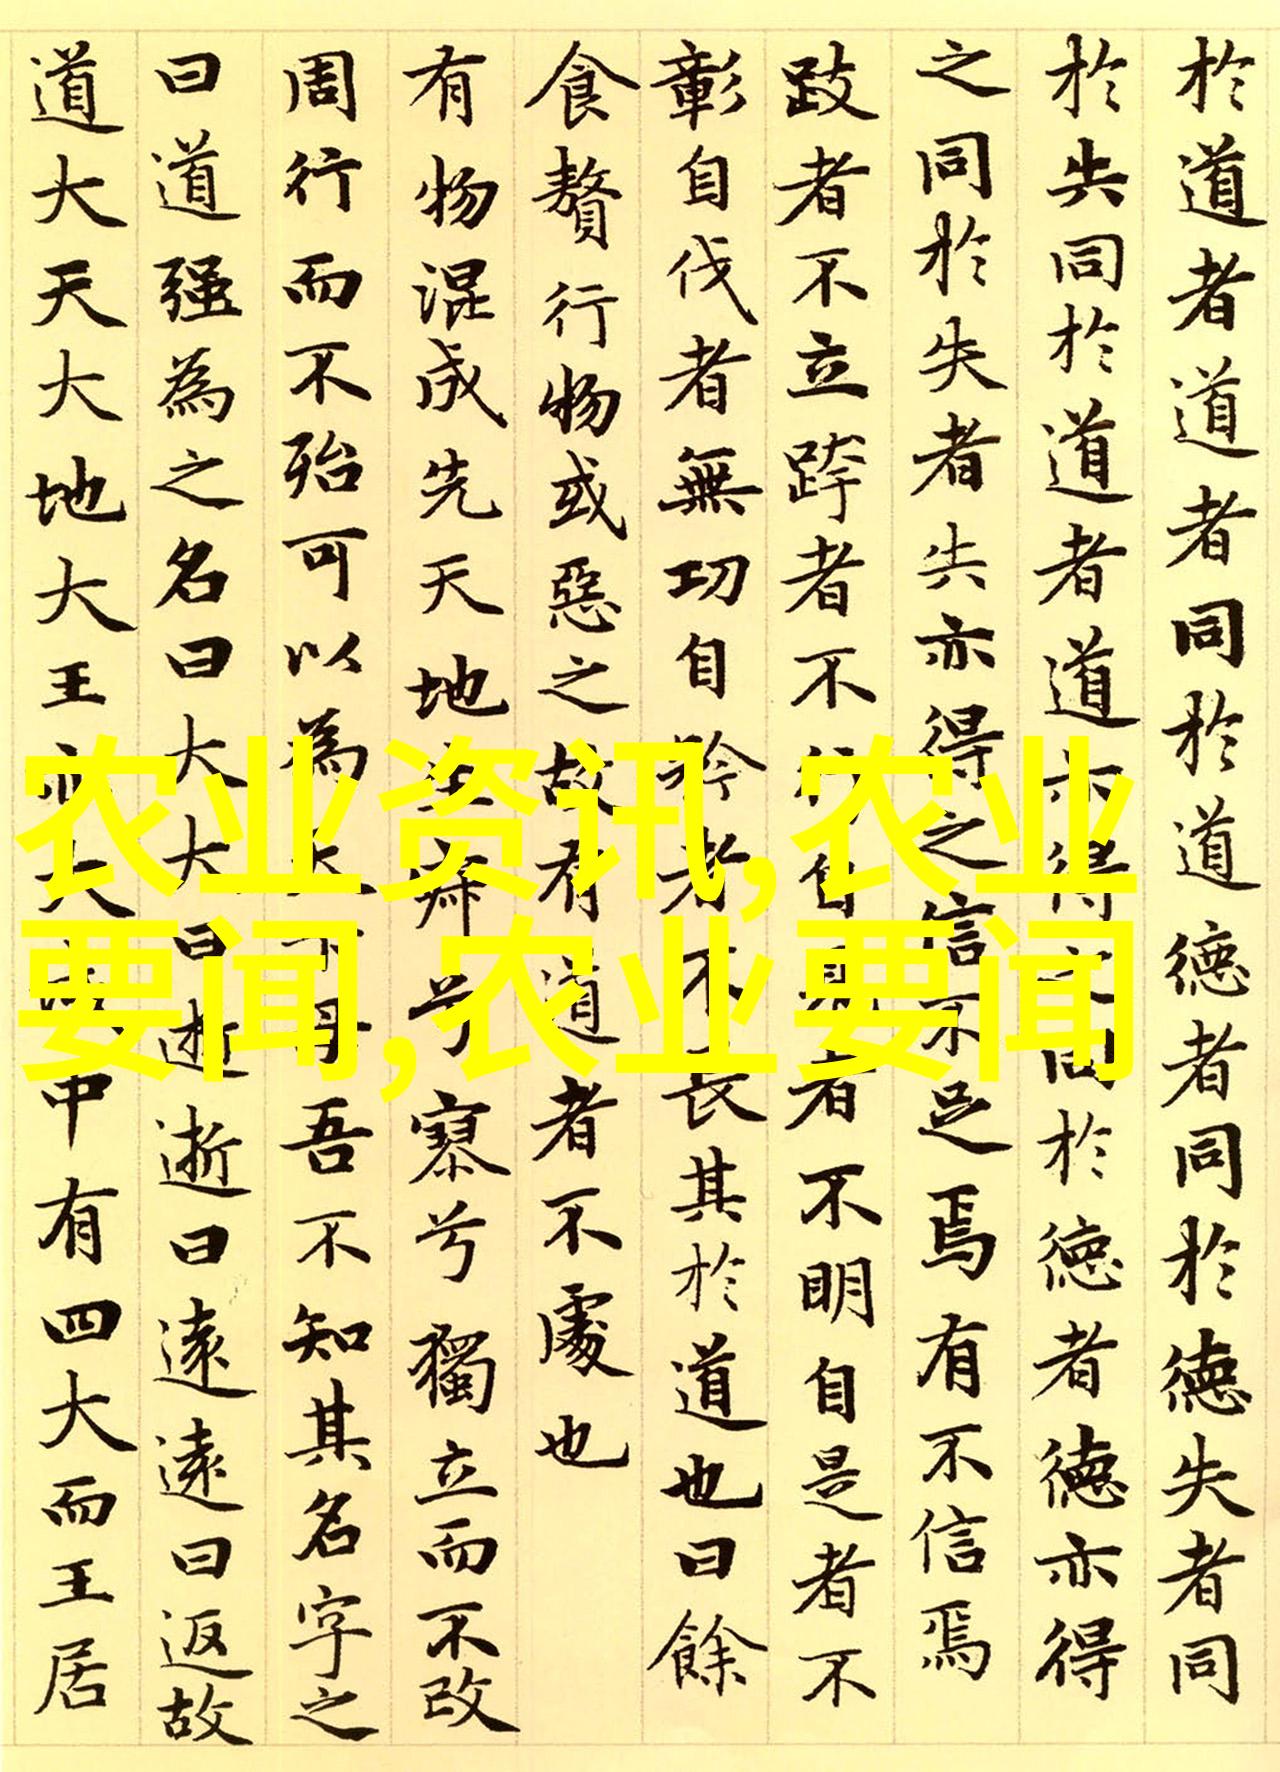 於道者道者同於道德者同於德失者同
於失同於道者道亦得之同於德者德亦得
之同於失者失亦得之信不足焉有不信焉
跂者不立跨者不行自見者不明自是者不
彰自伐者無功自矜者不長其於道也曰餘
食贅行物或惡之故有道者不處也
有物混成先天地生寂兮寥兮獨立而不改
周行而不殆可以為天下母吾不知其名字之
曰道强為之名曰大大曰逝逝曰遠遠曰返故
道大天大地大王亦大域中有四大而王居
农业资讯,农业
要闻,农业要闻